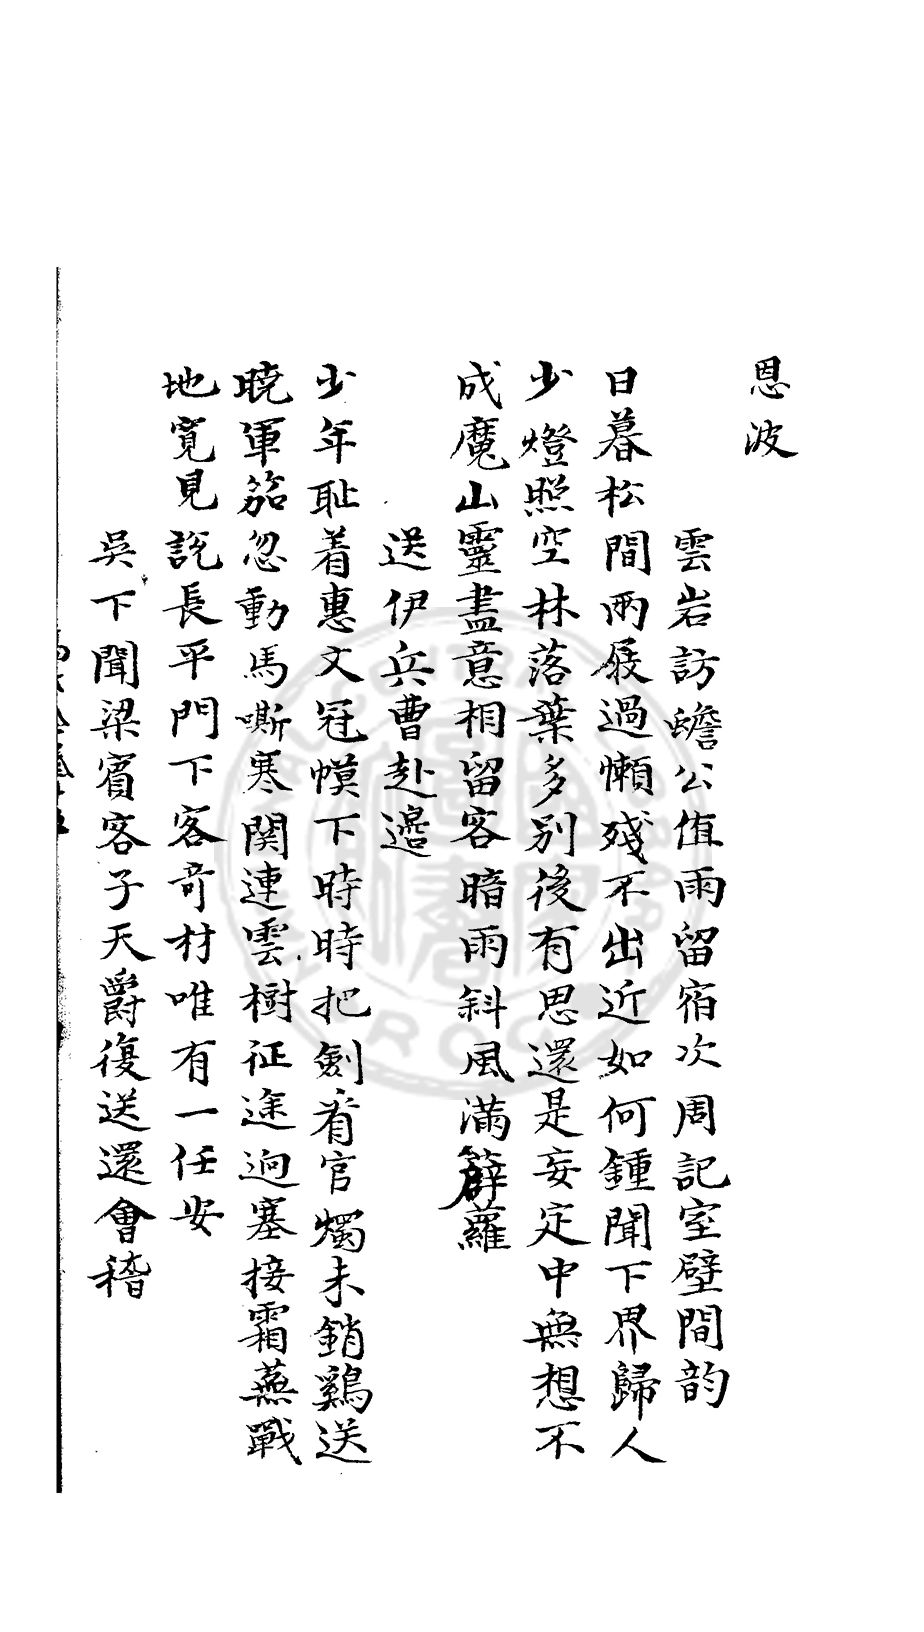 恩波
雲岩訪蟾公值雨留宿次周記室壁間韵
日暮松間雨屐過懶殘不出近如何鍾聞下界歸人
少燈照空林落葉多別後有思還是妄定中無想不
成魔山靈盡意相留客暗雨斜風滿薜蘿
送伊兵曹赴邊
少年耻着惠文冠幙下時時把劍看官燭未銷鷄送
曉軍笳忽動馬嘶寒関連雲樹征途逈塞接霜蕪戰
地寛見說長平門下客竒材唯有一任安
吳下聞梁賔客子天爵復送還會稽